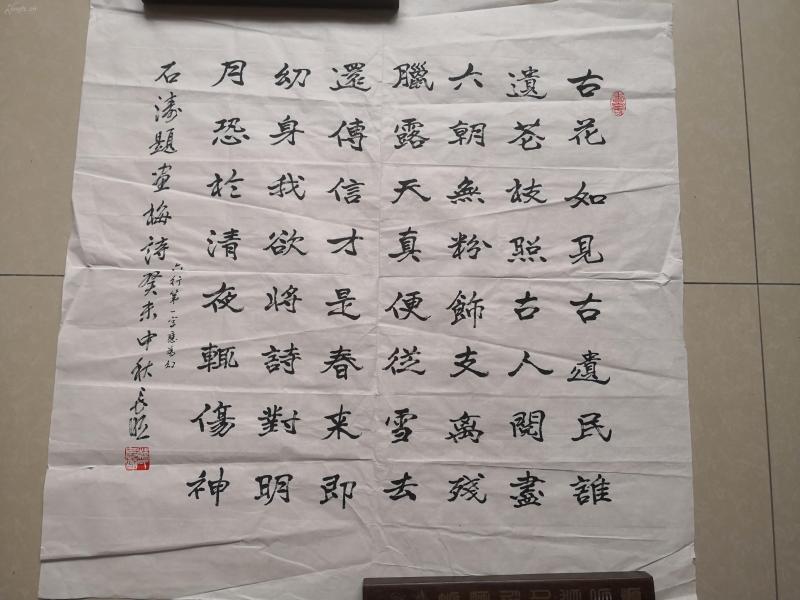 古花如見古遺民誰
遺芲枝照古人閱盡
六朝無粉飾支离殘
臘露天真便從雪去
還傳信才是春来即
幼身我欲將詩對明
月恐於清夜輒傷神
六行第一字應為幻
石濤題画梅詩癸未中秋長